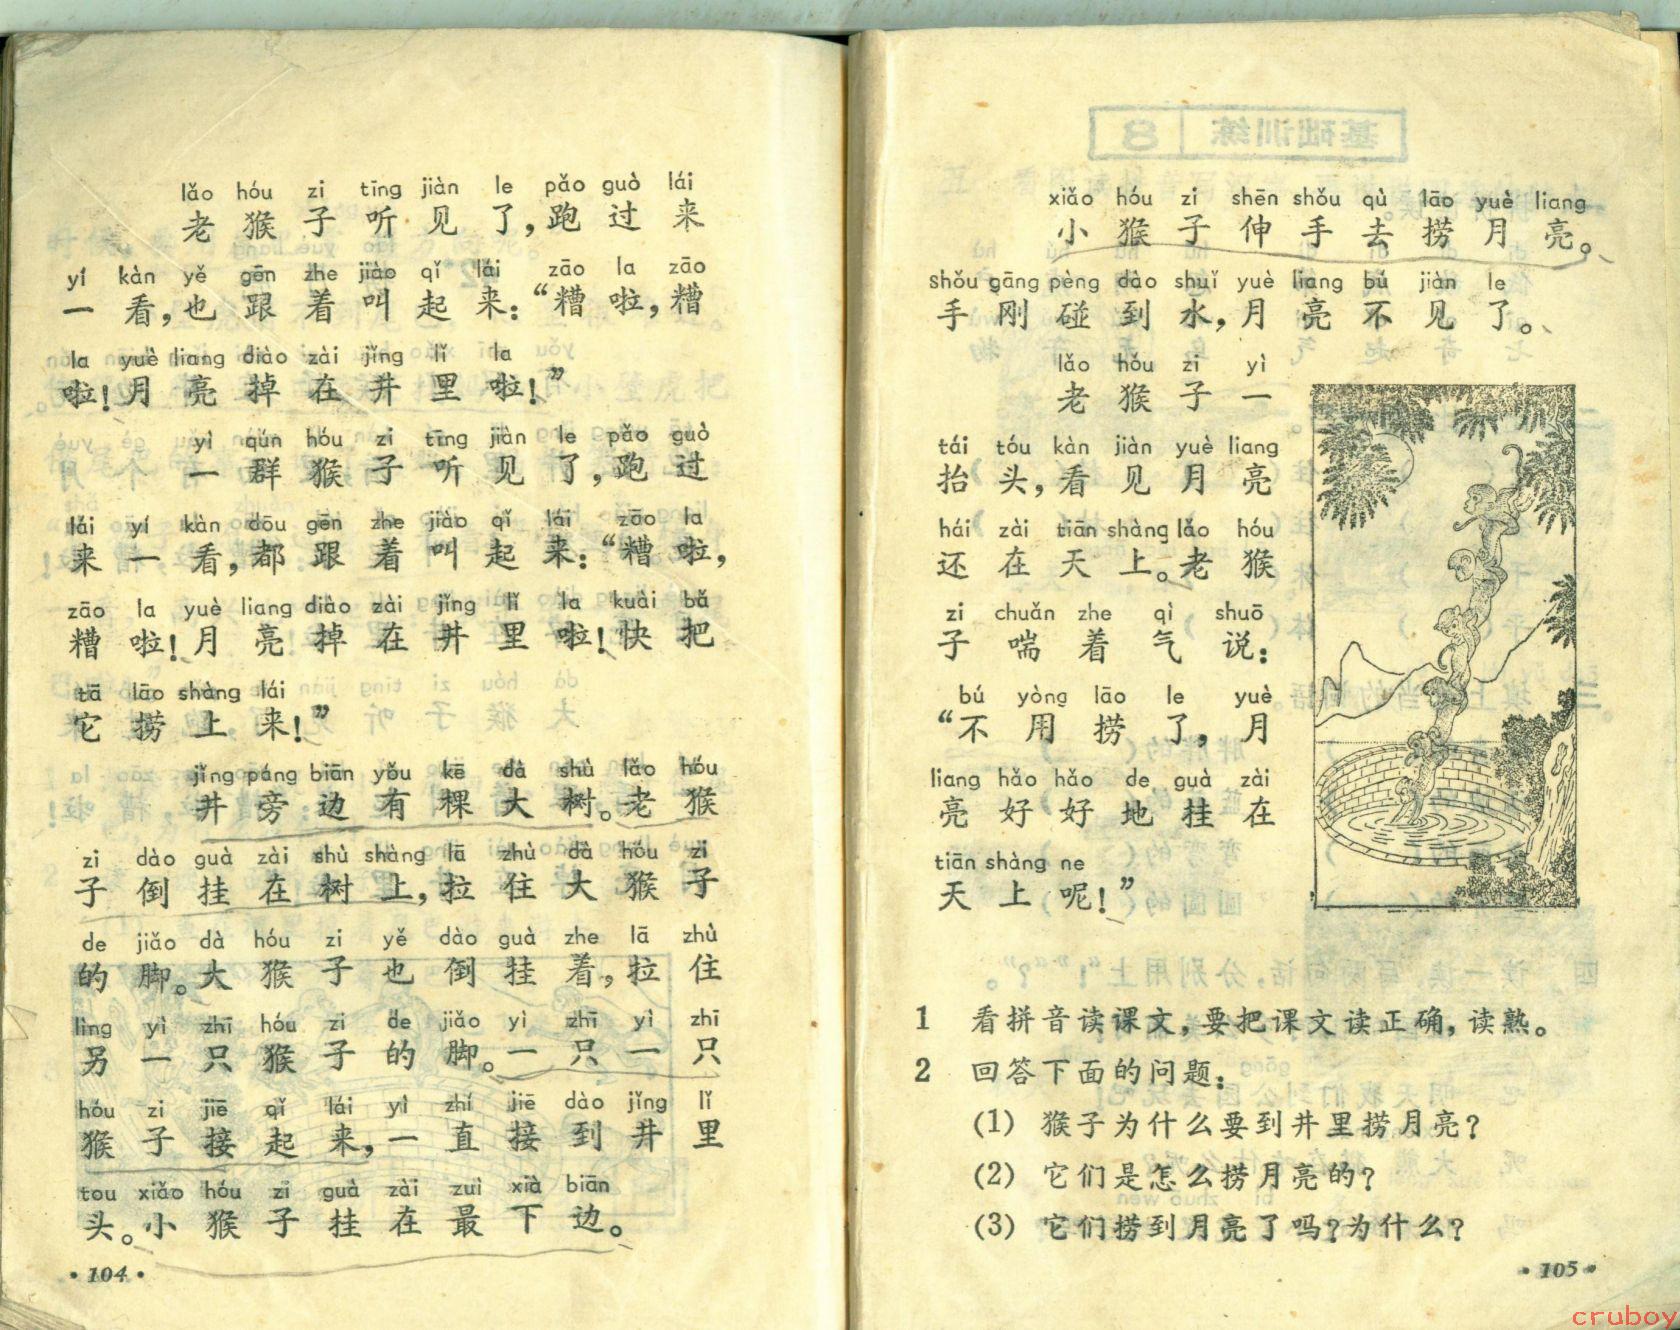 lǎo hóu zi tīng jiàn le pǎo guò lái
老猴子听见了，跑过来
yí kàn yě gēn zhe jiào qǐ lái zāo la zāo
一看，也跟着叫起来：“糟啦，糟
la yuè liang diào zài jǐng lǐ la
啦！月亮掉在井里啦！”
yì qún hóu zi tīng jiàn le pǎo guò
一群猴子听见了，跑过
lái yí kàn dōu gēn zhe jiào qǐ lái zāo la
来一看，都跟着叫起来：“糟啦，
zāo la yuè liang diào zài jǐng lǐ la kuài bǎ
糟啦！月亮掉在井里啦！快把
tā lāo shàng lái
它捞上来！”
jǐng páng biān yǒu kē dà shù lǎo hóu
井旁边有棵大树。老猴
zi dào guà zài shù shàng lā zhù dà hóu zi
子倒挂在树上，拉住大猴子
de jiǎo dà hóu zi yě dào guà zhe lā zhù
的脚。大猴子也倒挂着，拉住
lìng yì zhī hóu zi de jiǎo yì zhī yì zhī
另一只猴子的脚。一只一只
hóu zi jiē qǐ lái yì zhí jiē dào jǐng lǐ
猴子接起来，一直接到井里
tou xiǎo hóu zi guà zài zuì xià biān
头。小猴子挂在最下边。
·104·
xiǎo hóu zi shēn shǒu qù lāo yuè liang
小猴子伸手去捞月亮。
shǒu gāng pèng dào shuǐ yuè liang bú jiàn le
手刚碰到水，月亮不见了。
lǎo hóu zi yì
老猴子一
tái tóu kàn jiàn yuè liang
抬头，看见月亮
hái zài tiān shàng lǎo hóu
还在天上。老猴
zi chuǎn zhe qì shuō
子喘着气说：
bú yòng lāo le yuè
“不用捞了，月
liang hǎo hǎo de guà zài
亮好好地挂在
tiān shàng ne
天上呢！”
1 看拼音读课文，要把课文读正确，读熟。
2 回答下面的问题：
(1) 猴子为什么要到井里捞月亮？
(2) 它们是怎么捞月亮的？
(3) 它们捞到月亮了吗？为什么？
·105·
cruboy